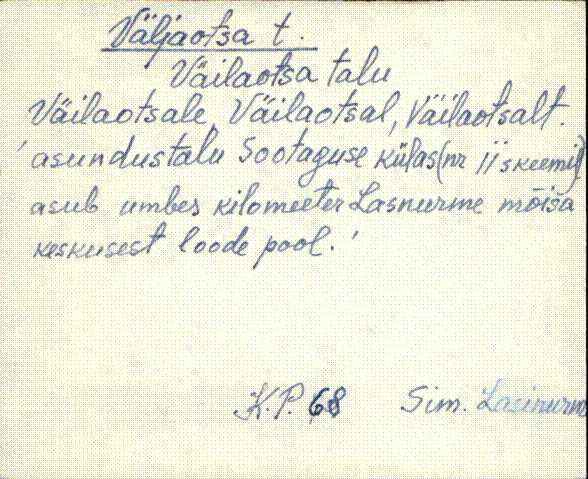 Väljaotsa t.
Väilaotsa talu
Väilaotsale, Väilaotsal, Väilaotsalt.
'asundustalu Sootaguse külas (nr 11 skeemil)
asub umbes kilomeeter Lasnurme mõisa
keskusest loode pool.'
K.P. 68 Sim. Lasinurme